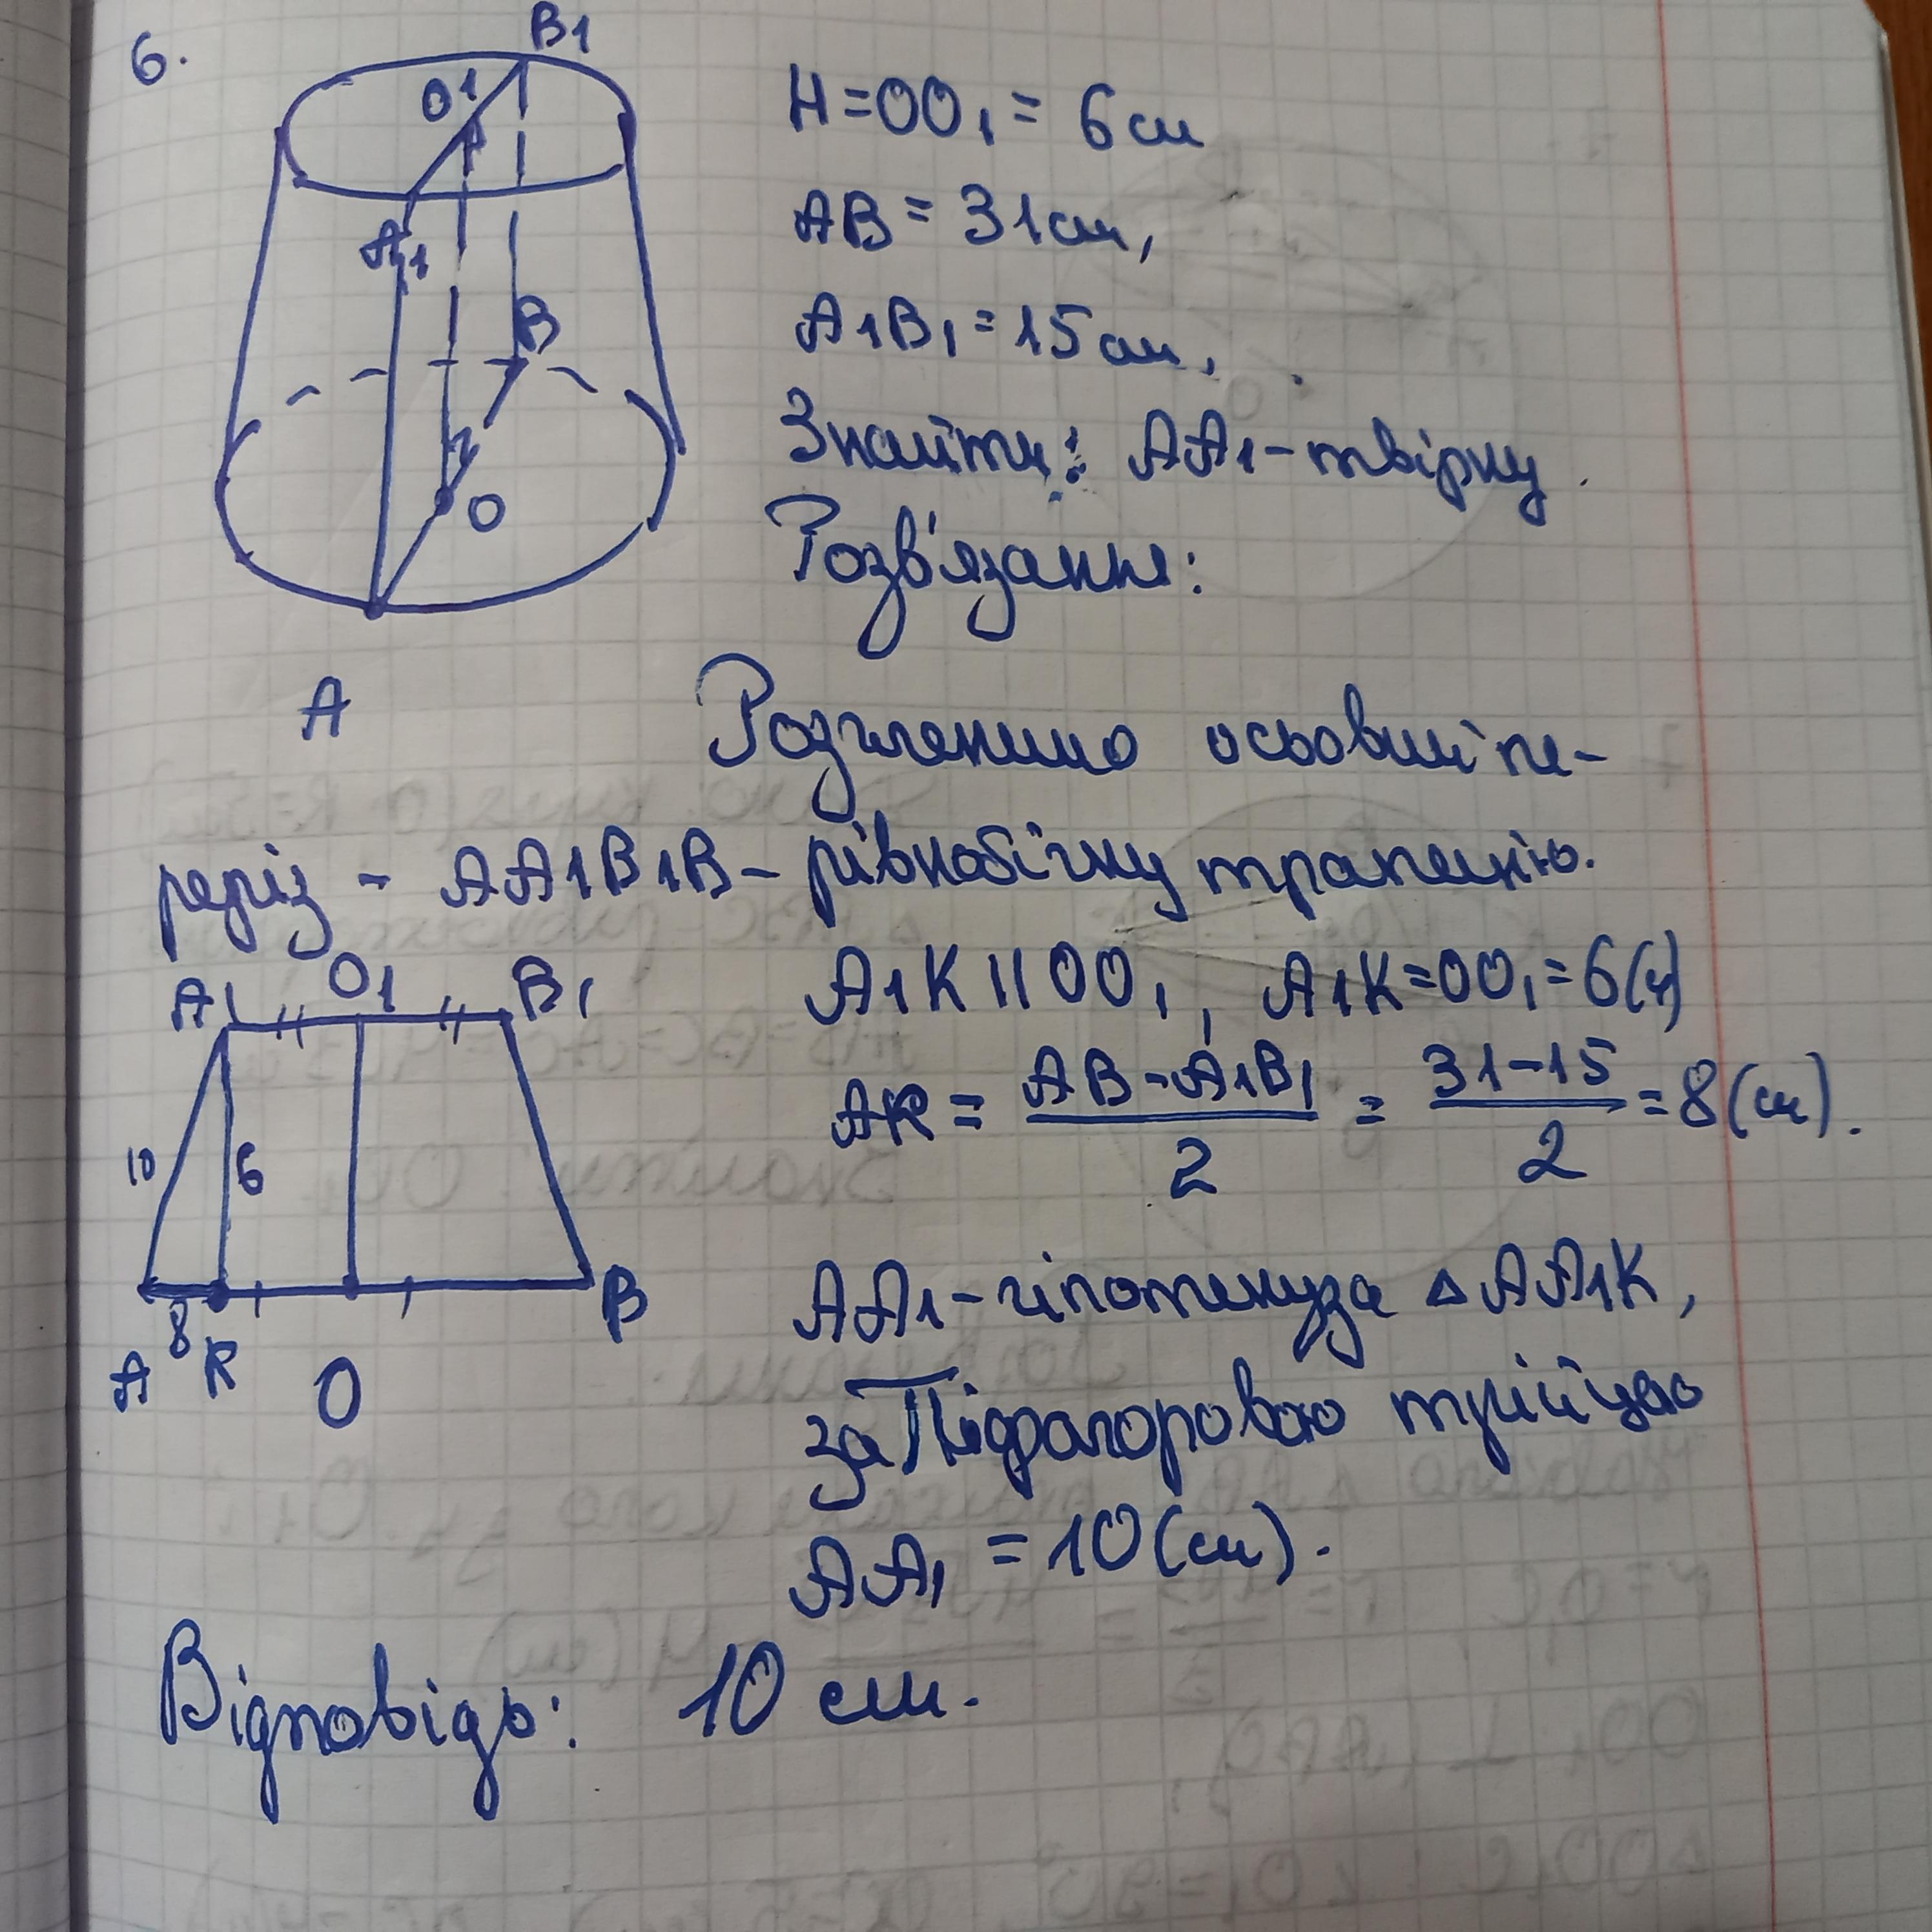 6.
B1
O1
A1
B
O
A
H=OO1 = 6 см
AB = 31 см,
A1B1 = 15 см,
Знайти: AA1 - твірну.
Розв'язання:
Розглянемо осьовий пе-
реріз - AA1B1B - рівнобічну трапецію.
A1 O1 B1
10 6
8
A K O B
A1K || OO1, A1K=OO1=6(см)
AK = AB-A1B1/2 = 31-15/2 = 8(см).
AA1 - гіпотенуза △AA1K,
за Піфагоровою трійцею
AA1 = 10(см).
Відповідь: 10 см.